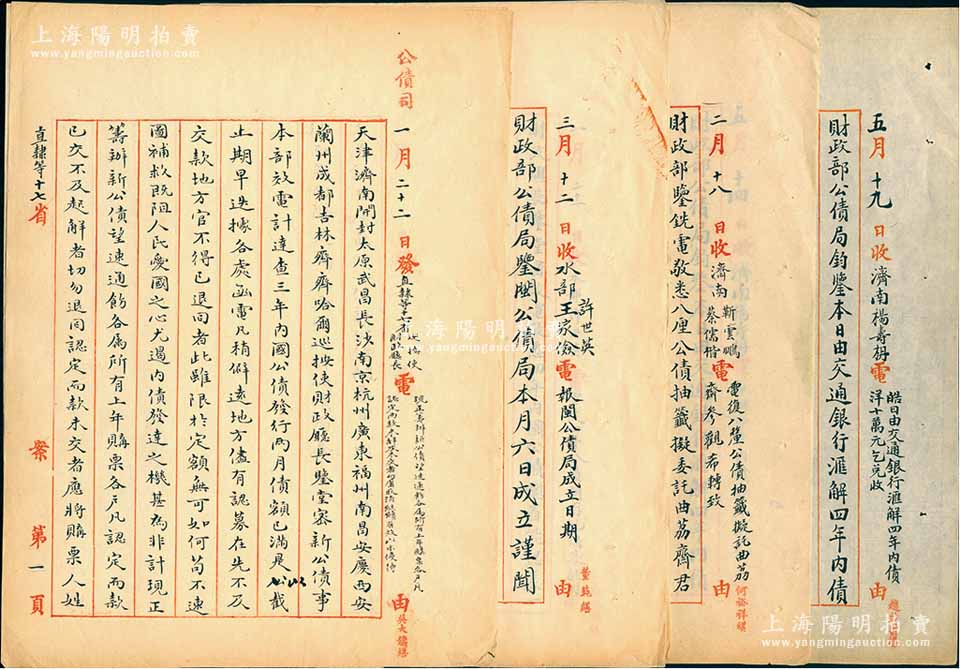 上海陽明拍賣
www.yangmingauction.com
五月十九日收濟南楊壽枬電
皓日由交通銀行滙解四年內債
洋十萬元乞兌收
由
財政部公債局鈞鑒本日由交通銀行滙解四年內債
二月十八日收濟南靳雲鵬蔡儒楷電
電復八釐公債抽籤擬託曲荔
齋參觀希轉致
由
何裕祥繕
財政部鑒銑電敬悉八厘公債抽籤擬委託曲荔齋君
三月十二日收水部許世英王家儉電
報閩公債局成立日期
由
財政部公債局鑒閩公債局本月六日成立謹聞
公債司
一月二十二日發直隸等十七省巡按使財政廳長電
由
吳大鏞繕
天津濟南開封太原武昌長沙南京杭州廣東福州南昌安慶西安
蘭州成都吉林齊齊哈爾巡按使財政廳長鑒堂密新公債事
本部效電計達查三年內國公債發行兩月債額已滿是以截
止期早迭據各處函電凡稍僻遠地方儘有認募在先不及
交款地方官不得已退回者此雖限於定額無可如何苟不速
圖補救既阻人民愛國之心尤遏內債發達之機甚為非計現正
籌辦新公債望速通飭各屬所有上年購票各戶凡認定而款
已交不及起解者切勿退回認定而款未交者應將購票人姓
直隸等十七省
案
第一頁
上海陽明拍賣
www.yangmingauction.com
上海陽明拍賣
www.yangmingauction.com